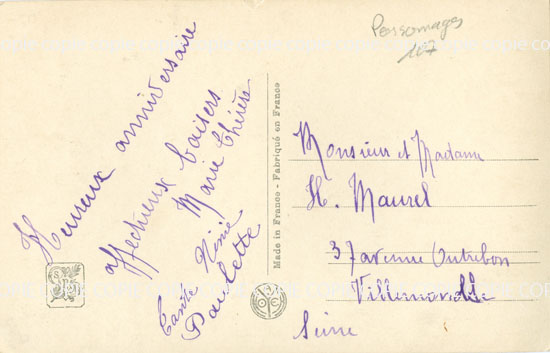 Personnages
107
Heureux anniversaire
affectueux baisers
Marie Thérèse
Tante Ninie
Paulette
Made in France - Fabriqué en France
Monsieur et Madame
H. Maurel
37 avenue Outrebon
Villemomble
Seine